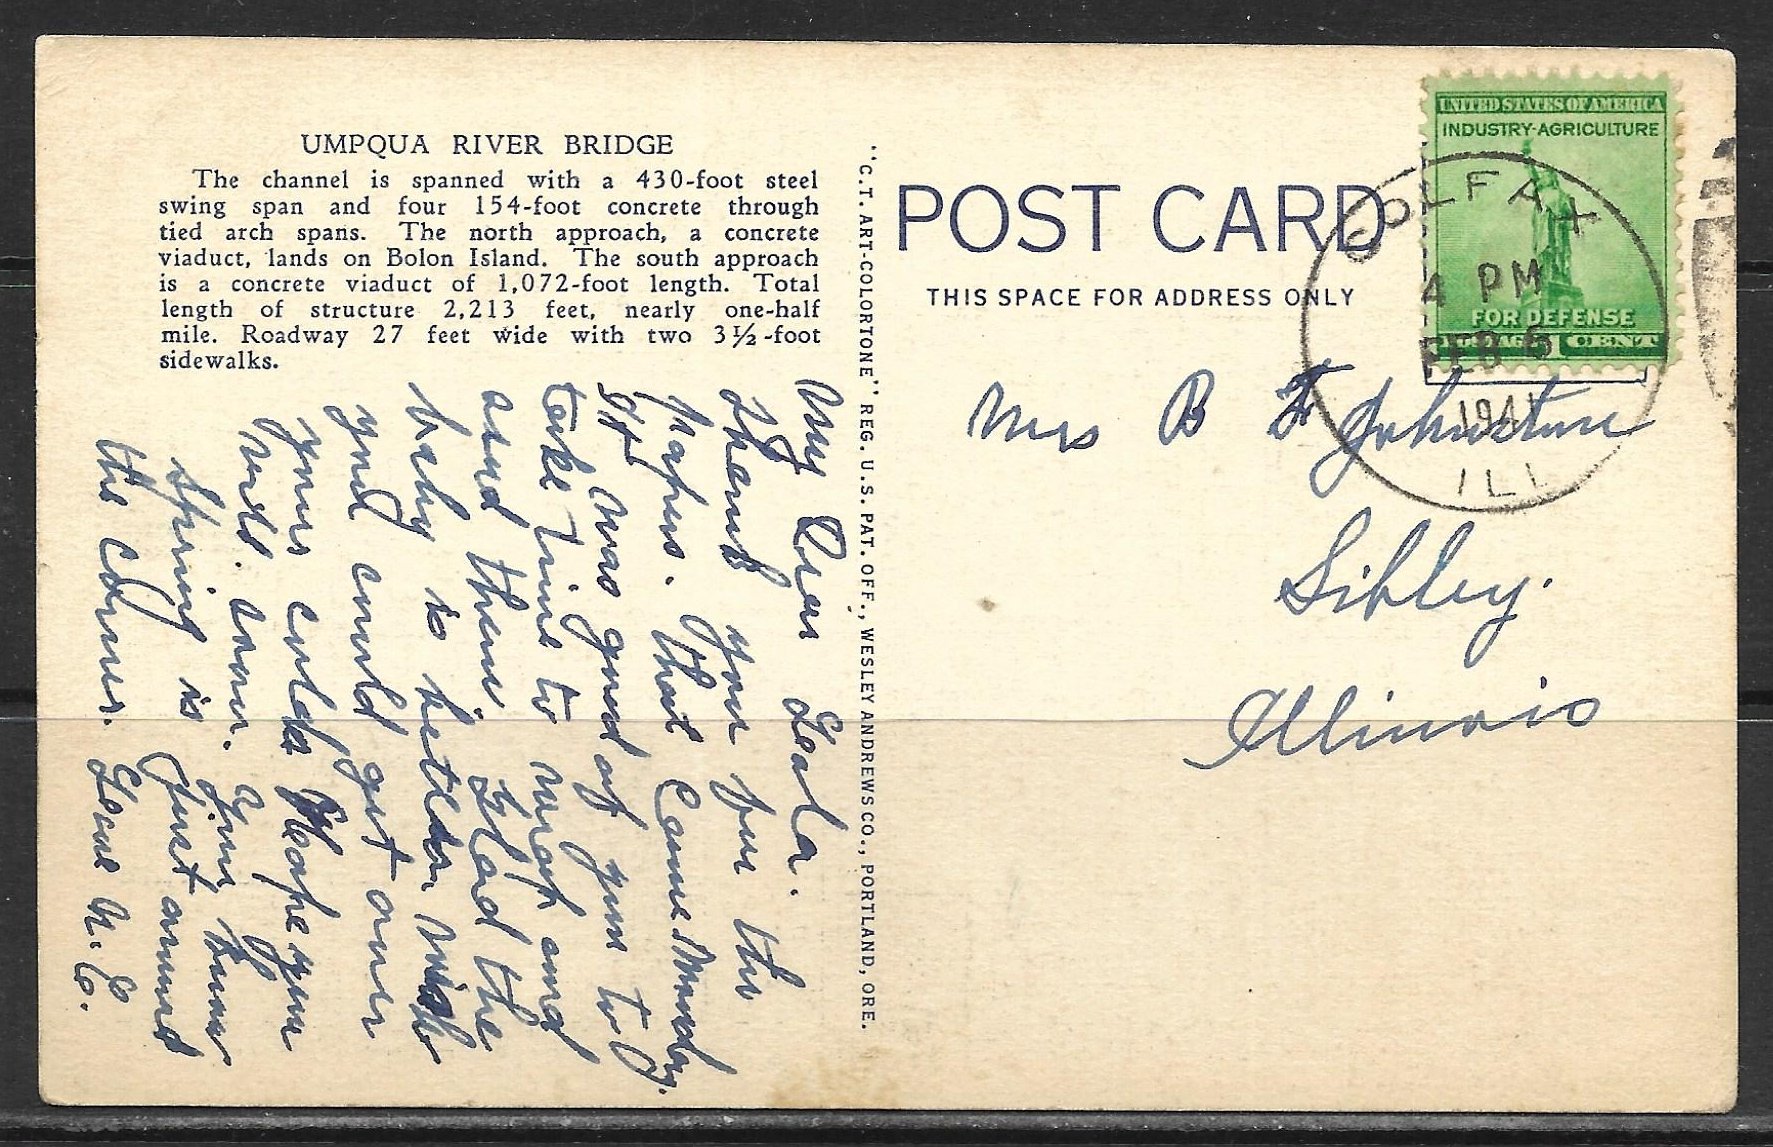 UMPQUA RIVER BRIDGE
The channel is spanned with a 430-foot steel
swing span and four 154-foot concrete through
tied arch spans. The north approach, a concrete
viaduct, lands on Bolon Island. The south approach
is a concrete viaduct of 1,072-foot length. Total
length of structure 2,213 feet, nearly one-half
mile. Roadway 27 feet wide with two 3½-foot
sidewalks.
My Dear Leola.
Thank you for the
papers. That Came Monday.
It was good of you to
take time to wrap and
send them. Glad the
baby is better wish
you could get over
your colds Hope you
will. soon. you know
Spring is just around
the corner. Love N. E.
"C.T. ART-COLORTONE" REG. U.S. PAT. OFF., WESLEY ANDREWS CO., PORTLAND, ORE.
POST CARD
THIS SPACE FOR ADDRESS ONLY
UNITED STATES OF AMERICA
INDUSTRY-AGRICULTURE
FOR DEFENSE
POSTAGE 1 CENT
COLFAX
4 PM
FEB 6
1941
ILL
Mrs B F Johnston
Sibley.
Illinois